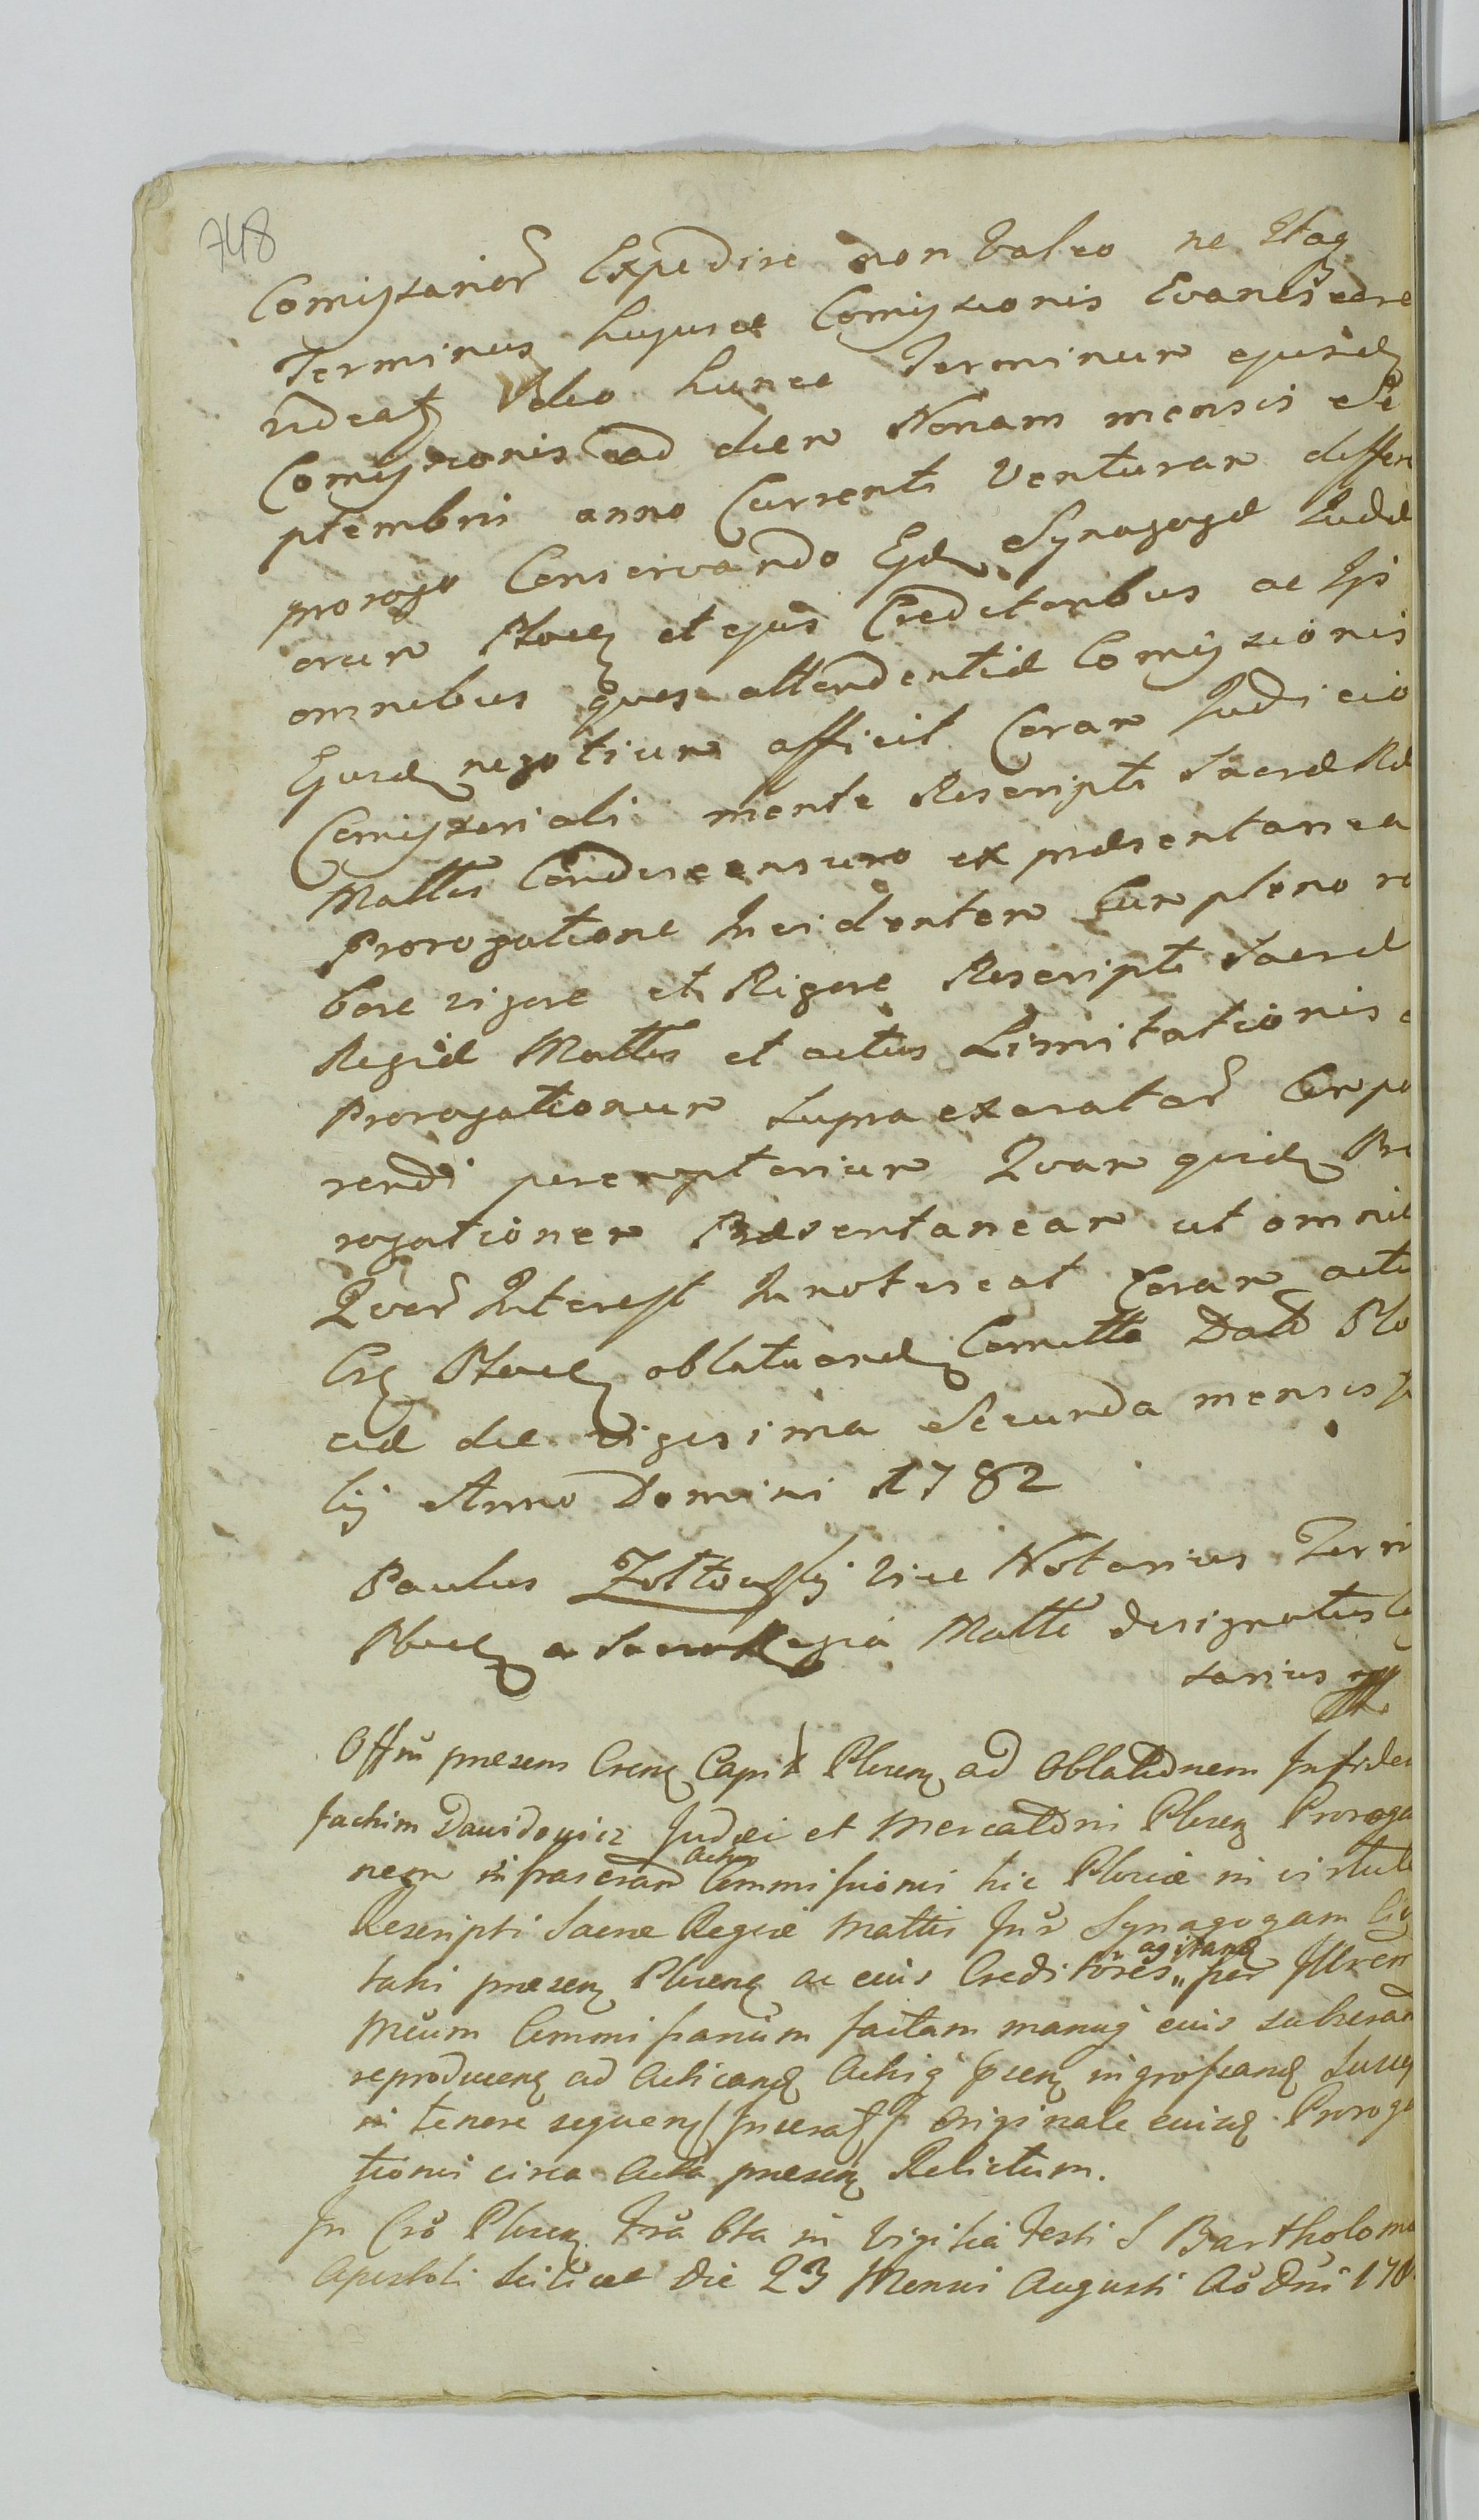 748
Comissarior Expedire non Valeo ne Itaq
Terminus hujusce Comissionis Evanescere
videat Ideo hunce Terminum ejusd
Comissionis ad diem Nonam mensis Se
ptembris anno Currenti Venturam differ
prorogo Conservando Synagogæ Judæ
orum Plocen et ejus Creditoribus ac Ips
omnibus quos attendentiæ Comissionis
Ejusd negotium afficit Coram Judicio
Comissoriali mente Rescripti Sacræ Re
Mattis Condescensuro ex præsentanea
Prorogatione Incidentem Cum pleno ro
bore vigore et Rigore Rescripti Sacræ
Regiæ Mattis et actus Limitationis
Prorogationum supra exarator Compa
rendi peremptorium Quam quid Pro
rogationem Præsentaneam ut omnib
Quor Interest Innotescat Coram actis
Cas Plocen oblatuand Comitto Datt Plo
ciæ die vigesima Secunda mensis Ju
lij Anno Domini 1782
Paulus Zołtowski Vice Notarius Terri
Plocen a Sacra Regia Matte designatus Co
sarius mpp
Offm præsens Crens Capit Plocens ad Oblationem Infideli
Joachim Dawidowicz Judæi et Mercatoris Plocens Proroga
nem infrascram Actus Commissionis hic Plociæ in virtute
Rescripti Sacræ Regiæ Mattis Inr Synagogam Civ
tatis præsens Plocens ac eius Creditores agitand per Illrem
Meum Commissarium factam manuq eius subscram
reproducens ad Acticand Actisq psens ingrossand Suscep
in tenore sequens Inserat Originale eiusd Proroga
tionis circa Acta præsens Relictum.
In Cro Plocens Fria 6ta in Vigilia Festi S Bartholomæ
Apostoli scilicet die 23 Mensis Augusti Ao Dni 178